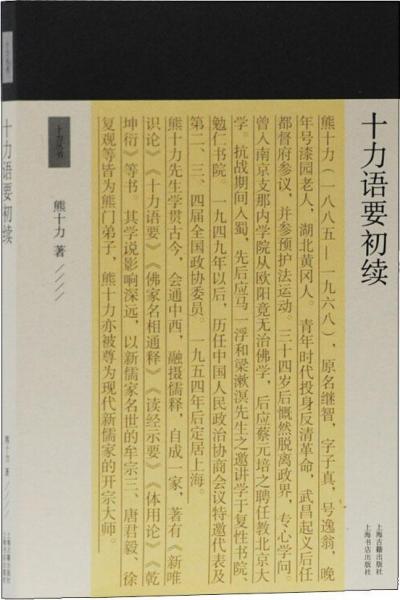 十力语要初续
上海古籍出版社
上海书店出版社
熊十力（一八八五—一九六八），原名继智，字子真，号逸翁，晚
年号漆园老人，湖北黄冈人。青年时代投身反清革命，武昌起义后任
都督府参议，并参预护法运动。三十四岁后慨然脱离政界，专心学问。
曾入南京支那内学院从欧阳竟无治佛学，后应蔡元培之聘任教北京大
学。抗战期间入蜀，先后应马一浮和梁漱溟先生之邀讲学于复性书院、
勉仁书院。一九四九年以后，历任中国人民政治协商会议特邀代表及
第二、三、四届全国政协委员。一九五四年后定居上海。
熊十力先生学贯古今，会通中西，融摄儒释，自成一家，著有《新唯
识论》《十力语要》《佛家名相通释》《读经示要》《体用论》《乾
坤衍》等书。其学说影响深远，以新儒家名世的牟宗三、唐君毅、徐
复观等皆为熊门弟子，熊十力亦被尊为现代新儒家的开宗大师。
十力丛书
熊十力 著
十力丛书
十力语要初续
熊十力 著
上海古籍出版社
上海书店出版社